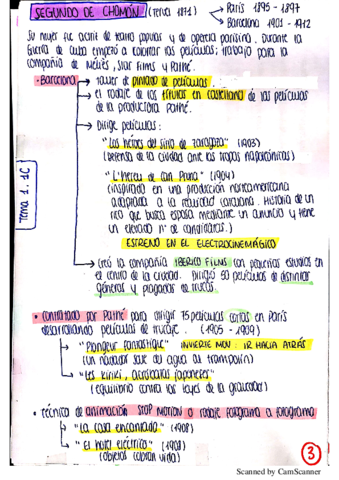 SEGUNDO DE CHOMÓN (Teruel 1871) → París 1895 - 1897
→ Barcelona 1901 - 1912
Su mujer fue actriz de teatro popular y de opereta parisina. Durante la
Guerra de Cuba empezó a colorear las películas; trabajó para la
compañía de Meliès, Star Films y Pathé.
• Barcelona
→ Taller de pintado de películas.
→ El rodaje de los títulos en castellano de las películas
de la productora Pathé.
→ Dirige películas:
"Los héroes del sitio de Zaragoza" (1903)
(Defensa de la ciudad ante las tropas napoleónicas)
"L'hereu de can Pruna" (1904)
(inspirada en una producción norteamericana
adaptada a la realidad catalana. Historia de un
rico que busca esposa mediante un anuncio y tiene
un elevado nº de candidatas.)
ESTRENO EN EL ELECTROCINEMÁGICO
→ Creó la compañía IBERICO FILMS con pequeños estudios en
el centro de la ciudad. Dirigió 50 películas de distintos
géneros y plagadas de trucos.
• Contratado por Pathé para dirigir 75 películas cortas en París
desarrollando películas de trucaje. (1905 - 1909)
→ "Plongeur fantastique" INVIERTE MOV: IR HACIA ATRÁS
(Un nadador sale del agua al trampolín)
→ "Les Kiriki, acrobatas japoneses"
(equilibrio contra las leyes de la gravedad)
• técnica de animación STOP MOTION o rodaje fotograma a fotograma
→ "La casa encantada" (1908)
→ "El hotel eléctrico" (1908)
(objetos cobran vida)
Tema 1. 1C
3
Scanned by CamScanner